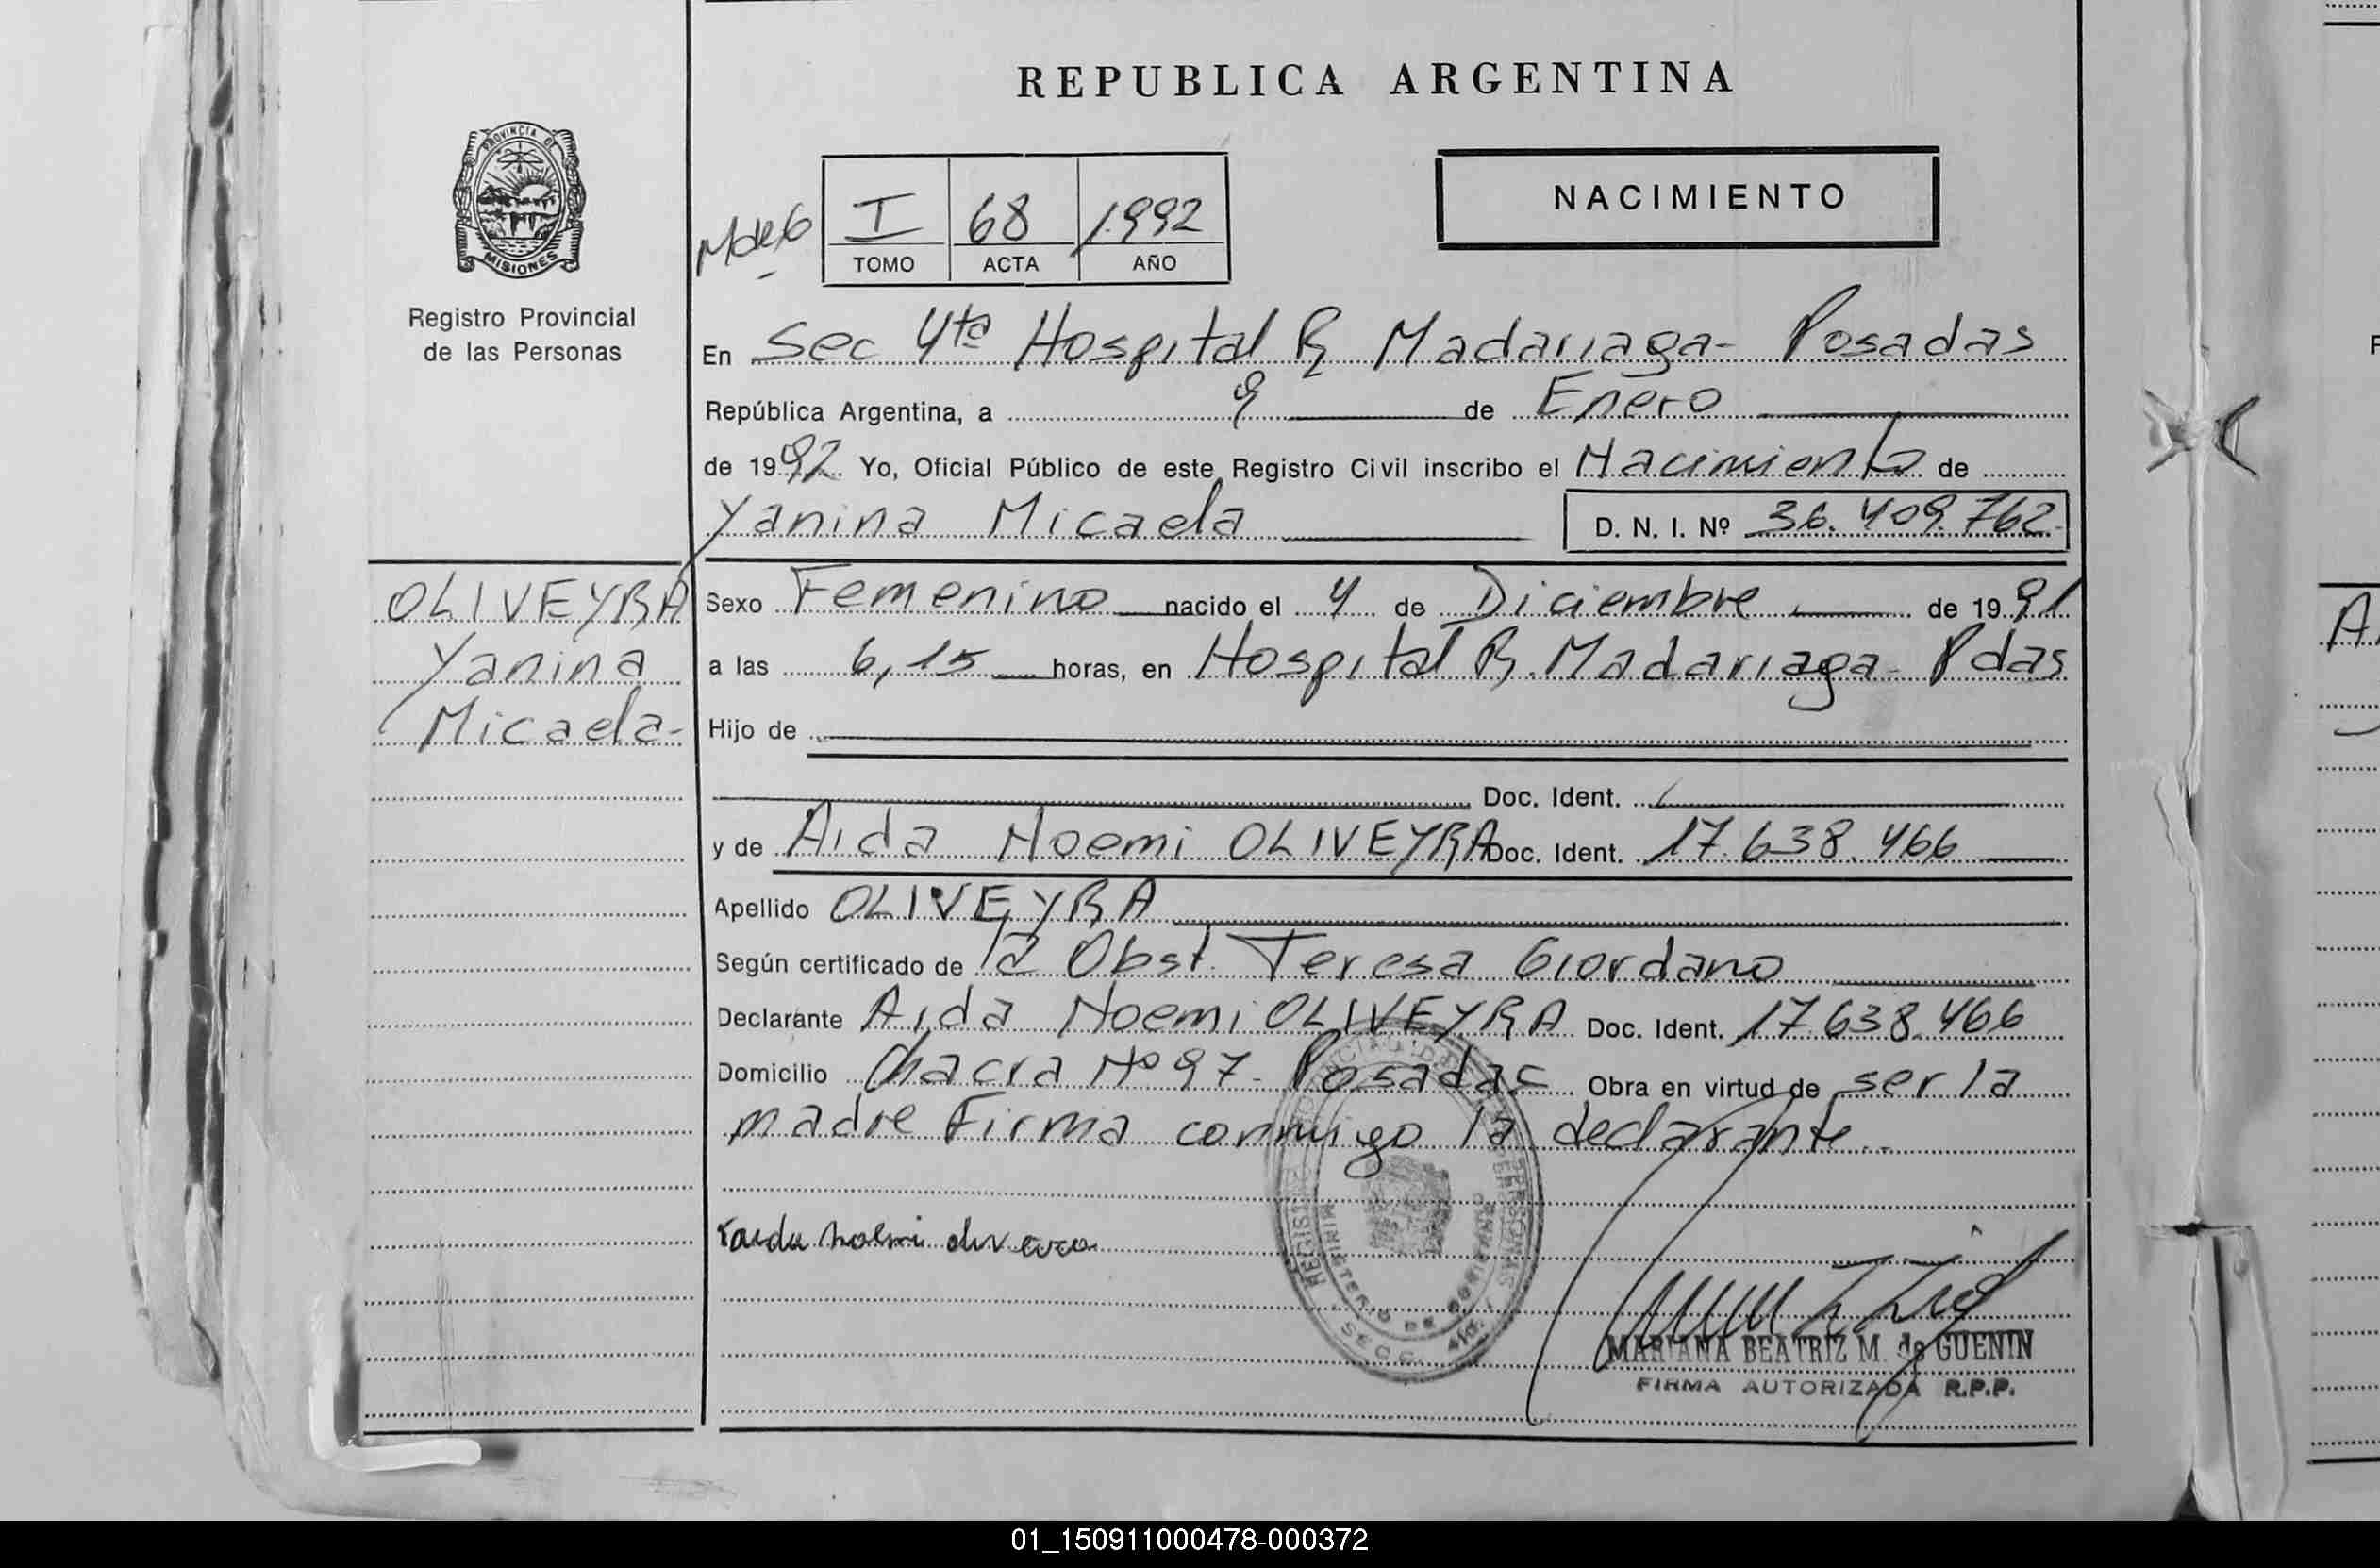 REPUBLICA ARGENTINA
PROVINCIA DE
MISIONES
Registro Provincial
de las Personas
NACIMIENTO
I 68 1992
TOMO ACTA AÑO
En Sec 4ta Hospital R Madariaga- Posadas
República Argentina, a 9 de Enero
de 1992 Yo, Oficial Público de este Registro Civil inscribo el Nacimiento de
Yanina Micaela D. N. I. Nº 36.409.762-
OLIVEYRA
Yanina
Micaela-
Sexo Femenino nacido el 4 de Diciembre de 1991
a las 6,15 horas, en Hospital R. Madariaga- Pdas
Hijo de
Doc. Ident.
y de Aida Noemi OLIVEYRA Doc. Ident. 17.638.466
Apellido OLIVEYRA
Según certificado de la Obst. Teresa Giordano
Declarante Aida Noemi OLIVEYRA Doc. Ident. 17.638.466
Domicilio Chacra Nº 97- Posadas Obra en virtud de ser la
madre Firma conmigo la declarante.-
MARIANA BEATRIZ M. de GUENIN
FIRMA AUTORIZADA R.P.P.
01_150911000478-000372